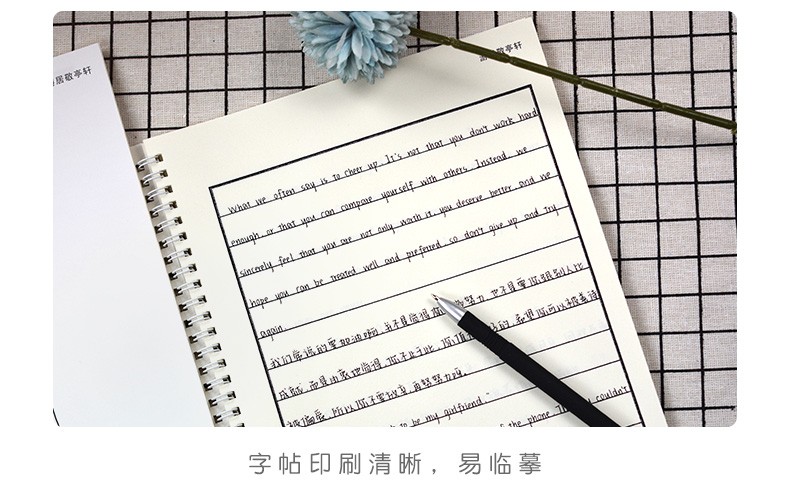 居敬亭轩
敬亭轩
What we often say is to cheer up. It's not that you don't work hard
enough or that you can compare yourself with others. Instead, we
sincerely feel that you are not only worth it you deserve better and we
hope you can be treated well and preferred so don't give up and try
again.
我们常说的要加油啊, 并不是觉得你 努力 也不是要你跟别人比
成就 而是由衷地觉得, 你不止于此, 你值 的, 希望你可以被善待
被偏爱, 所以你不要放弃, 再努努力啦。
to be my girlfriend.
of the phone. couldn't
字帖印刷清晰，易临摹